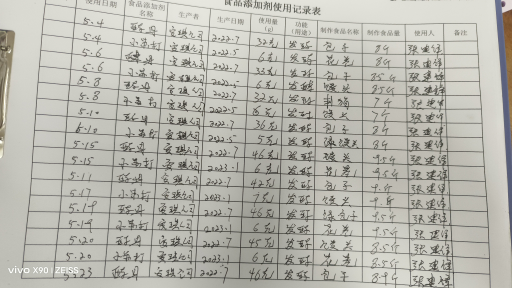 食品添加剂使用记录表
使用日期 食品添加剂名称 生产者 生产日期 使用量(g) 功能(用途) 制作食品名称 制作食品量 使用人 备注
5.4 酵母 安琪公司 2022.7 32克 发酵 包子 8斤 张建伟
5.4 小苏打 安琪公司 2022.5 6克 发酵 花卷 8斤 张建伟
5.6 酵母 安琪公司 2022.7 33克 发酵 包子 8.5斤 张建伟
5.6 小苏打 安琪公司 2022.5 6克 发酵 馒头 8.5斤 张建伟
5.8 酵母 安琪公司 2022.7 32克 发酵 7斤 张建伟
5.8 小苏打 安琪公司 2022.5 发酵 馒头 7斤 张建伟
5.10 酵母 安琪公司 2022.7 36克 发酵 包子 8斤 张建伟
5.10 小苏打 安琪公司 2022.5 5克 发酵 8斤 张建伟
5.15 酵母 安琪公司 2022.7 46克 发酵 馒头 9.5斤 张建伟
5.15 小苏打 安琪公司 2023.1 6克 发酵 花卷 9.5斤 张建伟
5.17 酵母 安琪公司 2022.7 42克 发酵 包子 张建伟
5.17 小苏打 安琪公司 2023.1 7克 发酵 馒头 张建伟
5.19 酵母 安琪公司 2022.7 46克 发酵 包子 9.5斤 张建伟
5.19 小苏打 安琪公司 2023.1 6克 发酵 花卷 9.5斤 张建伟
5.20 酵母 安琪公司 2022.7 45克 发酵 馒头 8.5斤 张建伟
5.20 小苏打 安琪公司 2023.1 6克 发酵 花卷 8.5斤 张建伟
5.23 酵母 安琪公司 2022.7 46克 发酵 包子 8.9斤 张建伟
vivo X90 | ZEISS